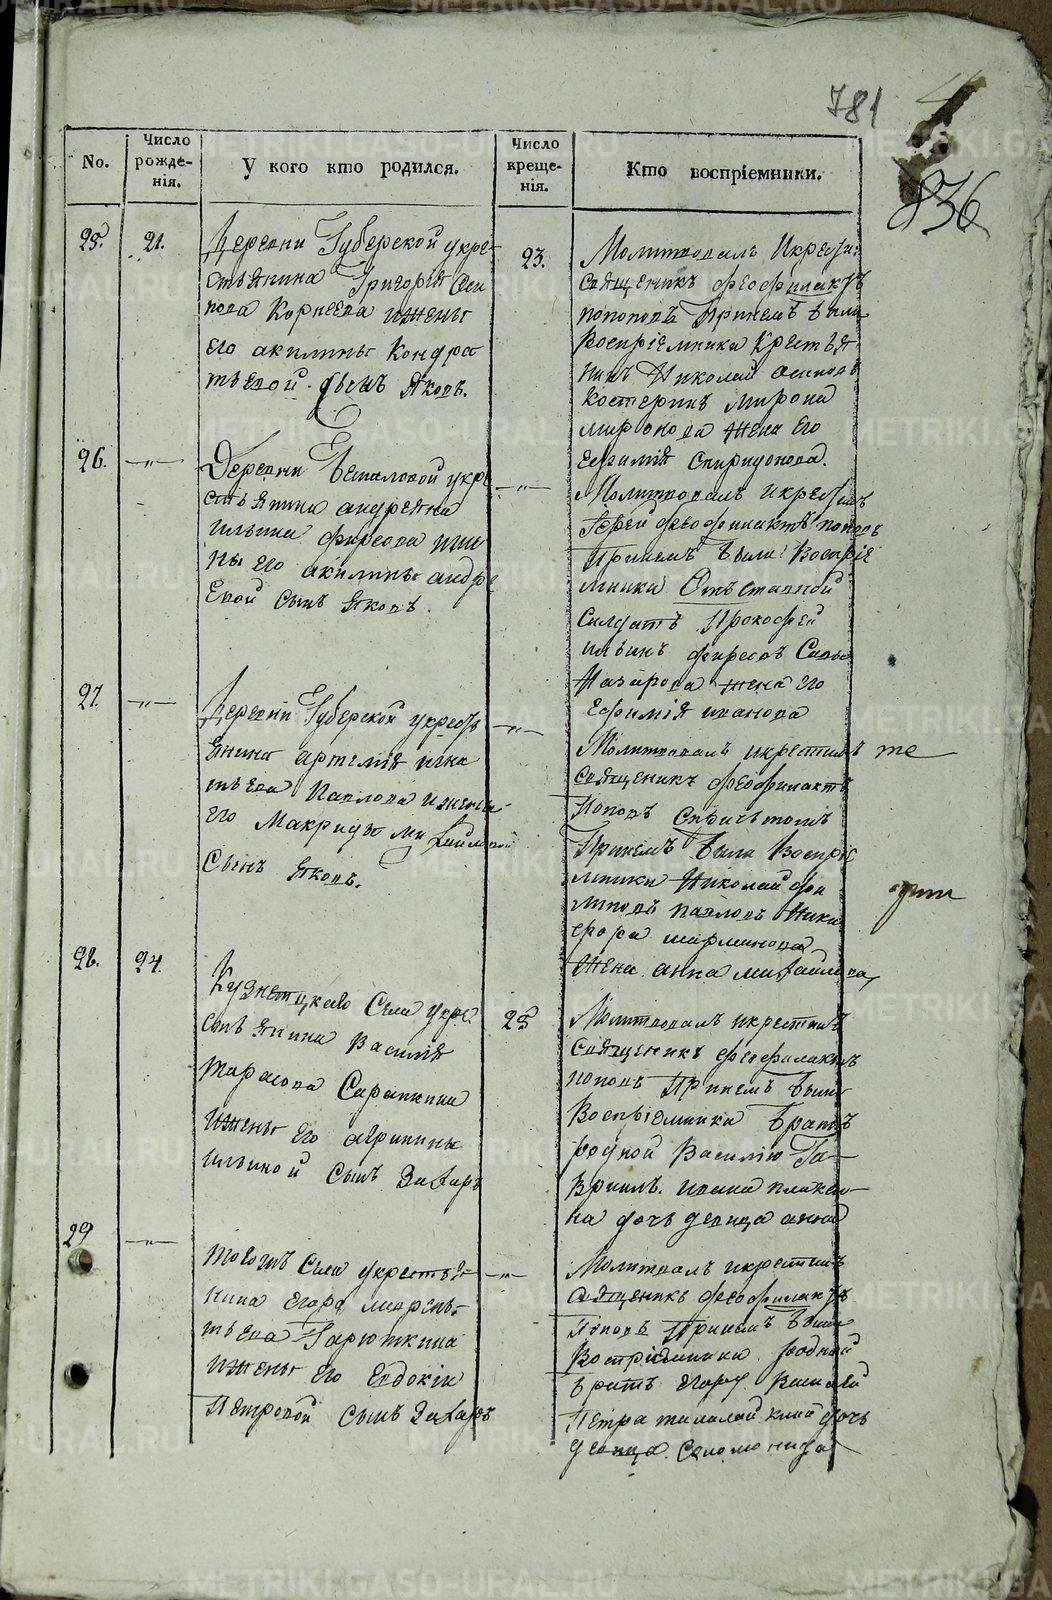 781
836
No.
Число рожде-нія.
У кого кто родился.
Число креще-нія.
Кто воспріемники.
25.
21.
Деревни Губерской укре
стьянина Григорія Оси
пова Корнеева ижены
его акилины Кондра
тьевой сынъ Яковъ.
23.
Молитвовалъ Икрести
священникъ феофилактъ
поповъ Прикемъ были
Воспріемники Крестья
нинъ Николай осиповъ
костеринъ Мирона
миронова жена Его
Ефимія Спиридонова.
26.
—„—
Деревни укре
стьянина андреяна
ильина фирсова иже
ны его акилины андре
Евой сынъ Яковъ.
—„—
Молитвовалъ икрестилъ
Іерей феофилактъ поповъ
Прикемъ были Воспріе
мники Отъставной
Салдатъ Прокофей
ильинъ фирсовъ Савы
Назарова жена его
Ефимія иванова
27.
—„—
Деревни Губерской укресть
янина артемія игна
тьева Павлова ижены
его Макриды михайловой
Сынъ Яковъ.
—„—
Молитвовалъ икрестилъ те
священникъ феофилактъ
Поповъ
Прикемъ была Воспріе
мники Николай фи
липовъ павловъ Ники
фора
жена анна михайлова
28.
24.
Кузнецкаго Села укре
стьянина Василія
Тарасова Сарапкина
ижены Его агрипины
ильиной сынъ Захаръ
25
Молитвовалъ икрестилъ
священникъ феофилактъ
поповъ Прикемъ были
Воспріемники братъ
родной Василію Га-
вриилъ. ивана
на дочь девица анна
29
—„—
тогожъ Села укрестья
нина Егора лаврень
тьева Гарюткина
ижены Его Евдокіи
Петровой сынъ Захаръ
—„—
Молитвалъ икрестилъ
священикъ феофилактъ
Поповъ Прикемъ были
Воспріемники родной
братъ Егору Василей
Петра дочь
девица Соломонида